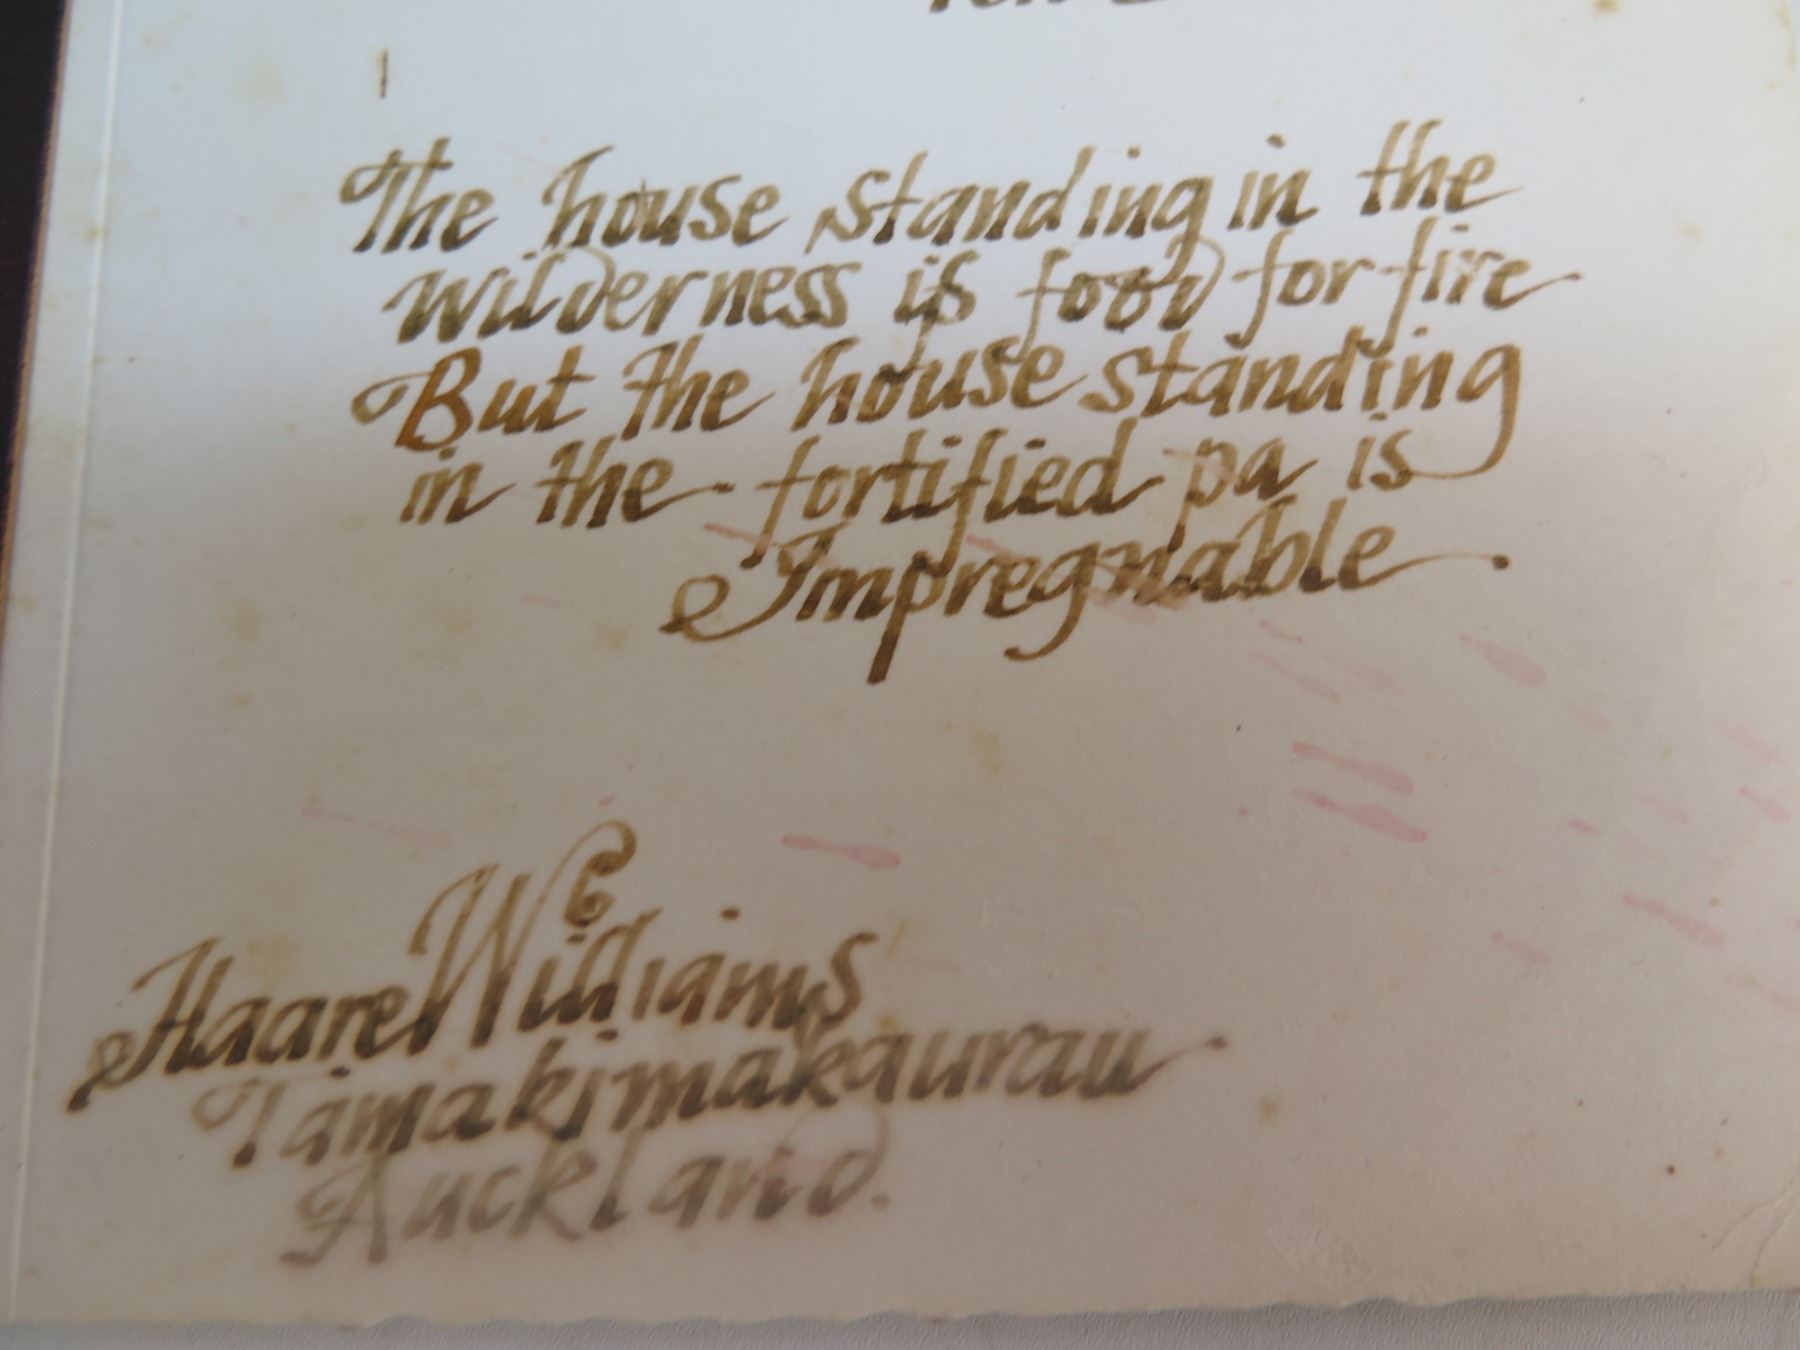 The house standing in the
wilderness is food for fire
But the house standing
in the fortified pa is
Impregnable
Haare Williams
Tamakimakaurau
Auckland.